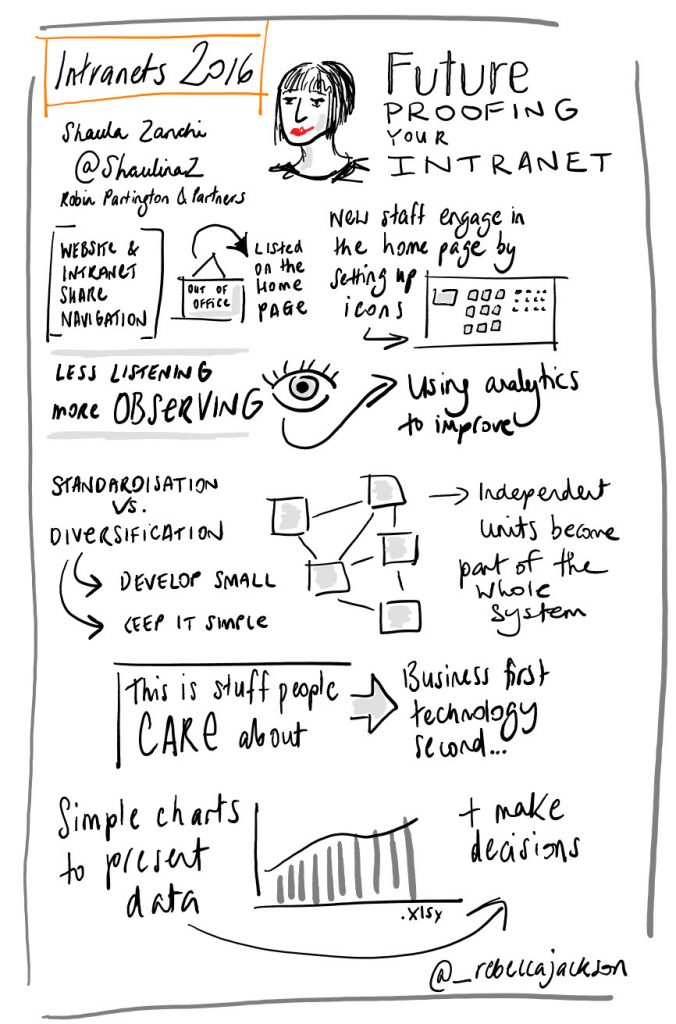 Intranets 2016
Future
PROOFING
YOUR
INTRANET
Shaula Zanchi
@ShaulinaZ
Robin Partington & Partners
WEBSITE &
INTRANET
SHARE
NAVIGATION
OUT OF
OFFICE
LISTED
ON THE
HOME
PAGE
New staff engage in
the home page by
setting up
icons
LESS LISTENING
more OBSERVING
Using analytics
to improve
STANDARDISATION
VS.
DIVERSIFICATION
DEVELOP SMALL
KEEP IT SIMPLE
Independent
units become
part of the
whole
system
This is stuff people
CARE about
Business first
technology
second...
Simple charts
to present
data
.xlsx
+ make
decisions
@_rebeccajackson